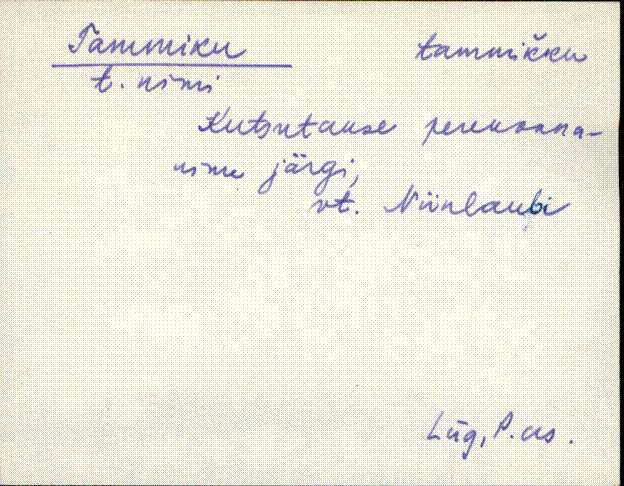 Tammiku tammikku
t. nimi
Kutsutakse perekonna-
nime järgi,
vt. Niinlaubi
Lüg, P. as.